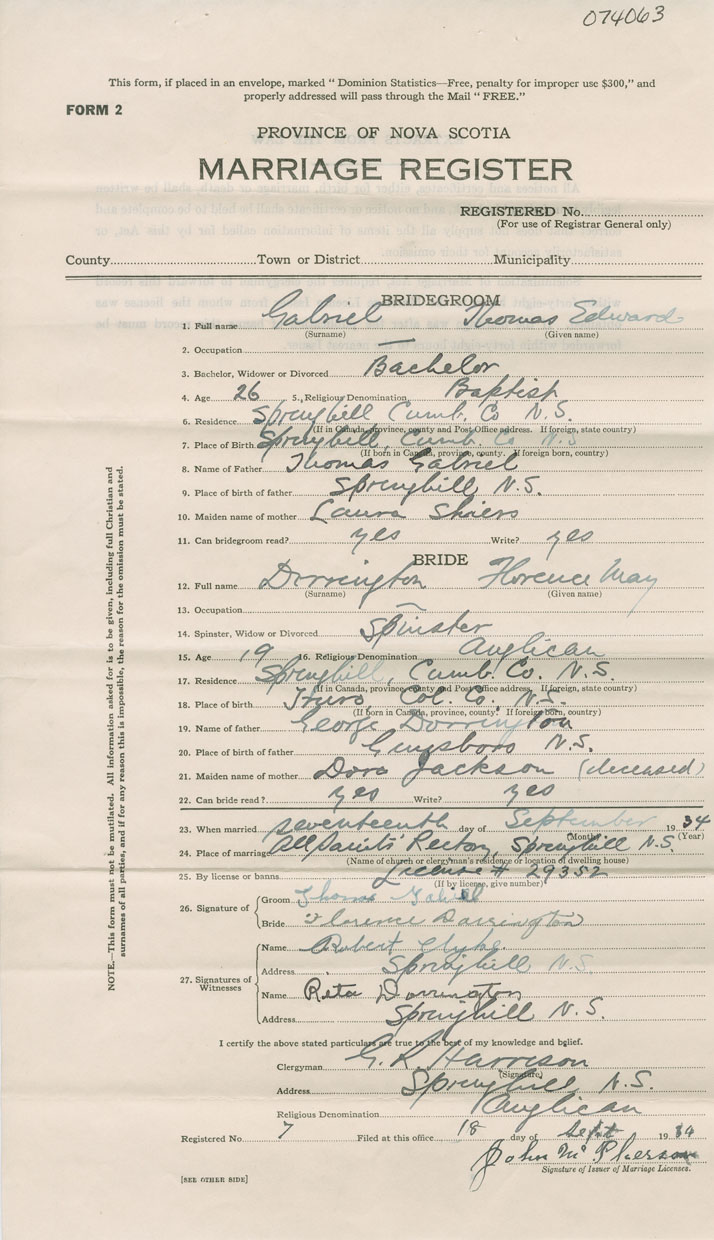 074063
This form, if placed in an envelope, marked "Dominion Statistics—Free, penalty for improper use $300," and
properly addressed will pass through the Mail "FREE."
FORM 2
PROVINCE OF NOVA SCOTIA
MARRIAGE REGISTER
REGISTERED No.
(For use of Registrar General only)
County Town or District Municipality
BRIDEGROOM
1. Full name Gabriel Thomas Edward
(Surname) (Given name)
2. Occupation —
3. Bachelor, Widower or Divorced Bachelor
4. Age 26 5. Religious Denomination Baptist
6. Residence Springhill Cumb. Co N.S.
(If in Canada, province, county and Post Office address. If foreign, state country)
7. Place of Birth Springhill, Cumb. Co N.S
(If born in Canada, province, county. If foreign born, country)
8. Name of Father Thomas Gabriel
9. Place of birth of father Springhill N.S.
10. Maiden name of mother Laura Skiers
11. Can bridegroom read? yes Write? yes
BRIDE
12. Full name Dorrington Florence May
(Surname) (Given name)
13. Occupation —
14. Spinster, Widow or Divorced Spinster
15. Age 19 16. Religious Denomination Anglican
17. Residence Springhill, Cumb. Co. N.S.
(If in Canada, province, county and Post Office address. If foreign, state country)
18. Place of birth Truro, Col. Co. N.S.
(If born in Canada, province, county. If foreign born, country)
19. Name of father George Dorrington
20. Place of birth of father Guysboro N.S.
21. Maiden name of mother Dora Jackson (deceased)
22. Can bride read? yes Write? yes
23. When married seventeenth day of September 1934
(Month) (Year)
24. Place of marriage All Saints' Rectory, Springhill N.S.
(Name of church or clergyman's residence or location of dwelling house)
25. By license or banns License # 29352
(If by license, give number)
26. Signature of Groom Thomas Gabriel
Bride Florence Dorrington
27. Signatures of Witnesses
Name Robert Clyke
Address Springhill N.S.
Name Reta Dorrington
Address Springhill N.S.
I certify the above stated particulars are true to the best of my knowledge and belief.
Clergyman G. R. Harrison
(Signature)
Address Springhill N.S.
Religious Denomination Anglican
Registered No. 7 Filed at this office 18 day of Sept 1934
John McPherson
Signature of Issuer of Marriage Licenses.
[SEE OTHER SIDE]
NOTE.—This form must not be mutilated. All information asked for is to be given, including full Christian and
surnames of all parties, and if for any reason this is impossible, the reason for the omission must be stated.